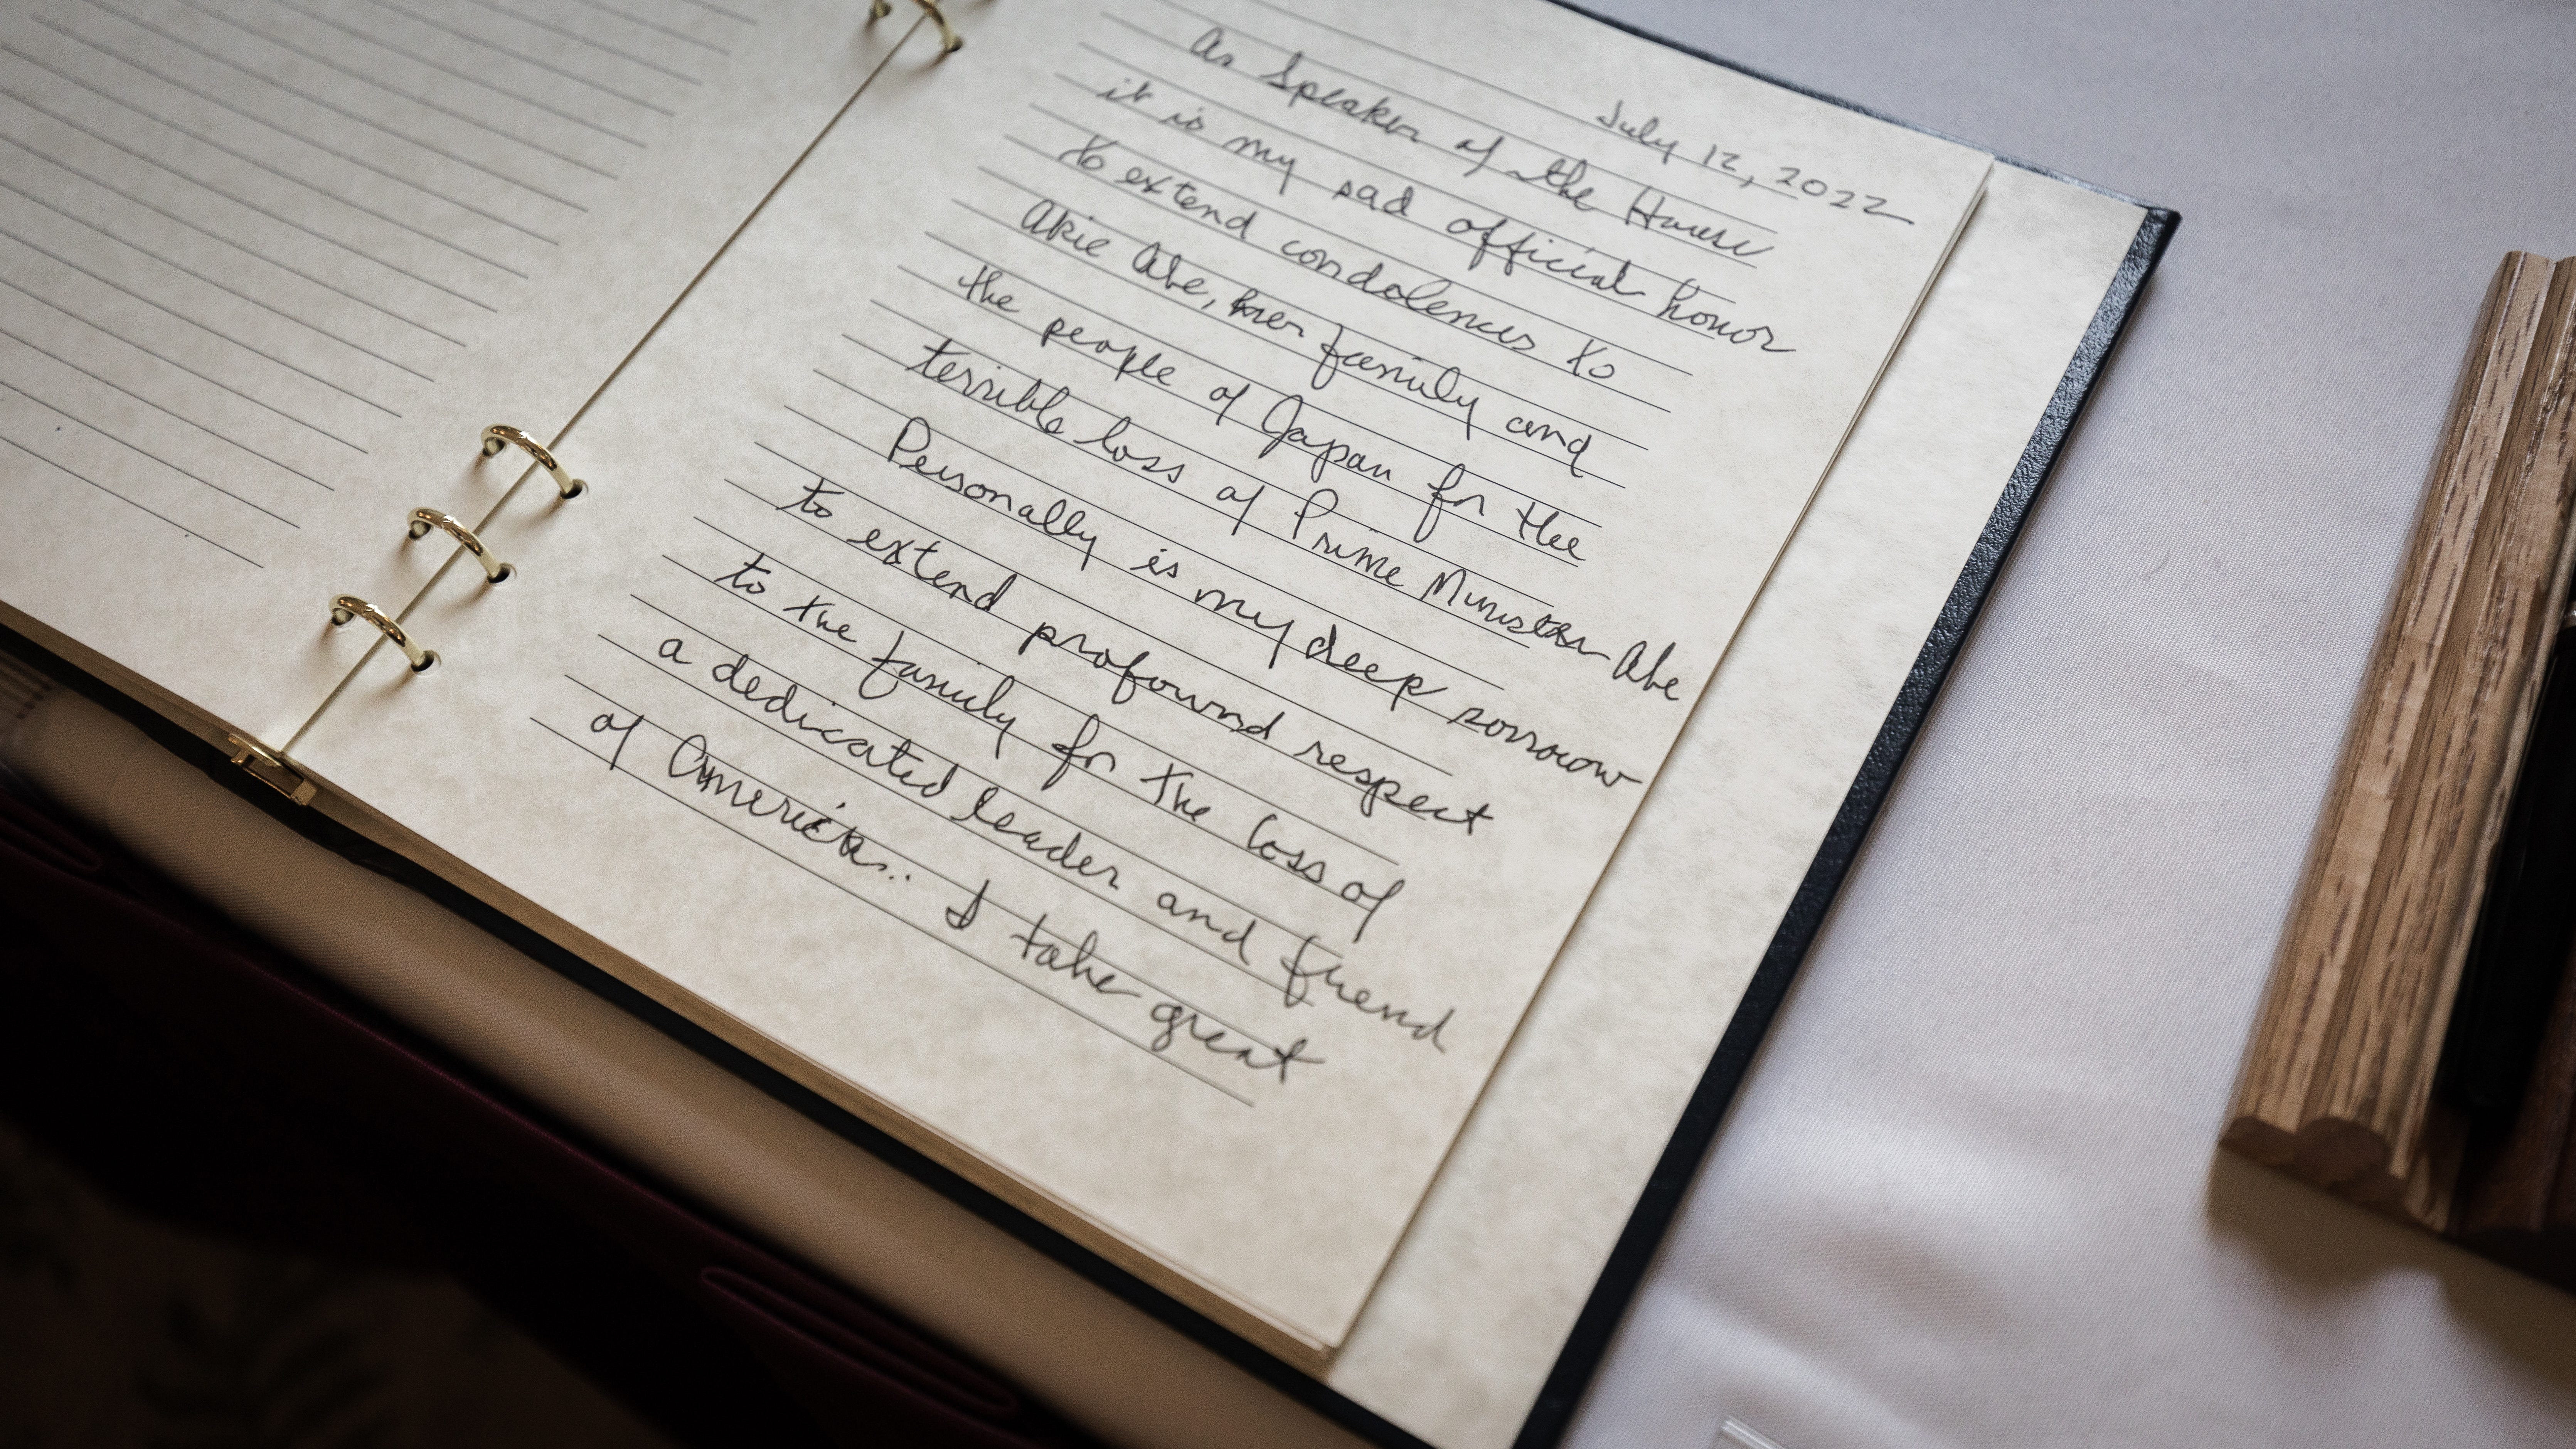 July 12, 2022
As Speaker of the House
it is my sad official honor
to extend condolences to
Akie Abe, her family and
the people of Japan for the
terrible loss of Prime Minister Abe
Personally is my deep sorrow
to extend profound respect
to the family for the loss of
a dedicated leader and friend
of America.. I take great